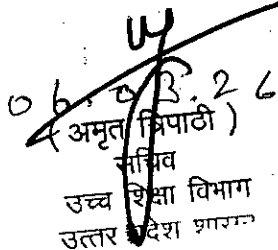 06.03.26
(अमृत त्रिपाठी)
सचिव
उच्च शिक्षा विभाग
उत्तर प्रदेश शासन